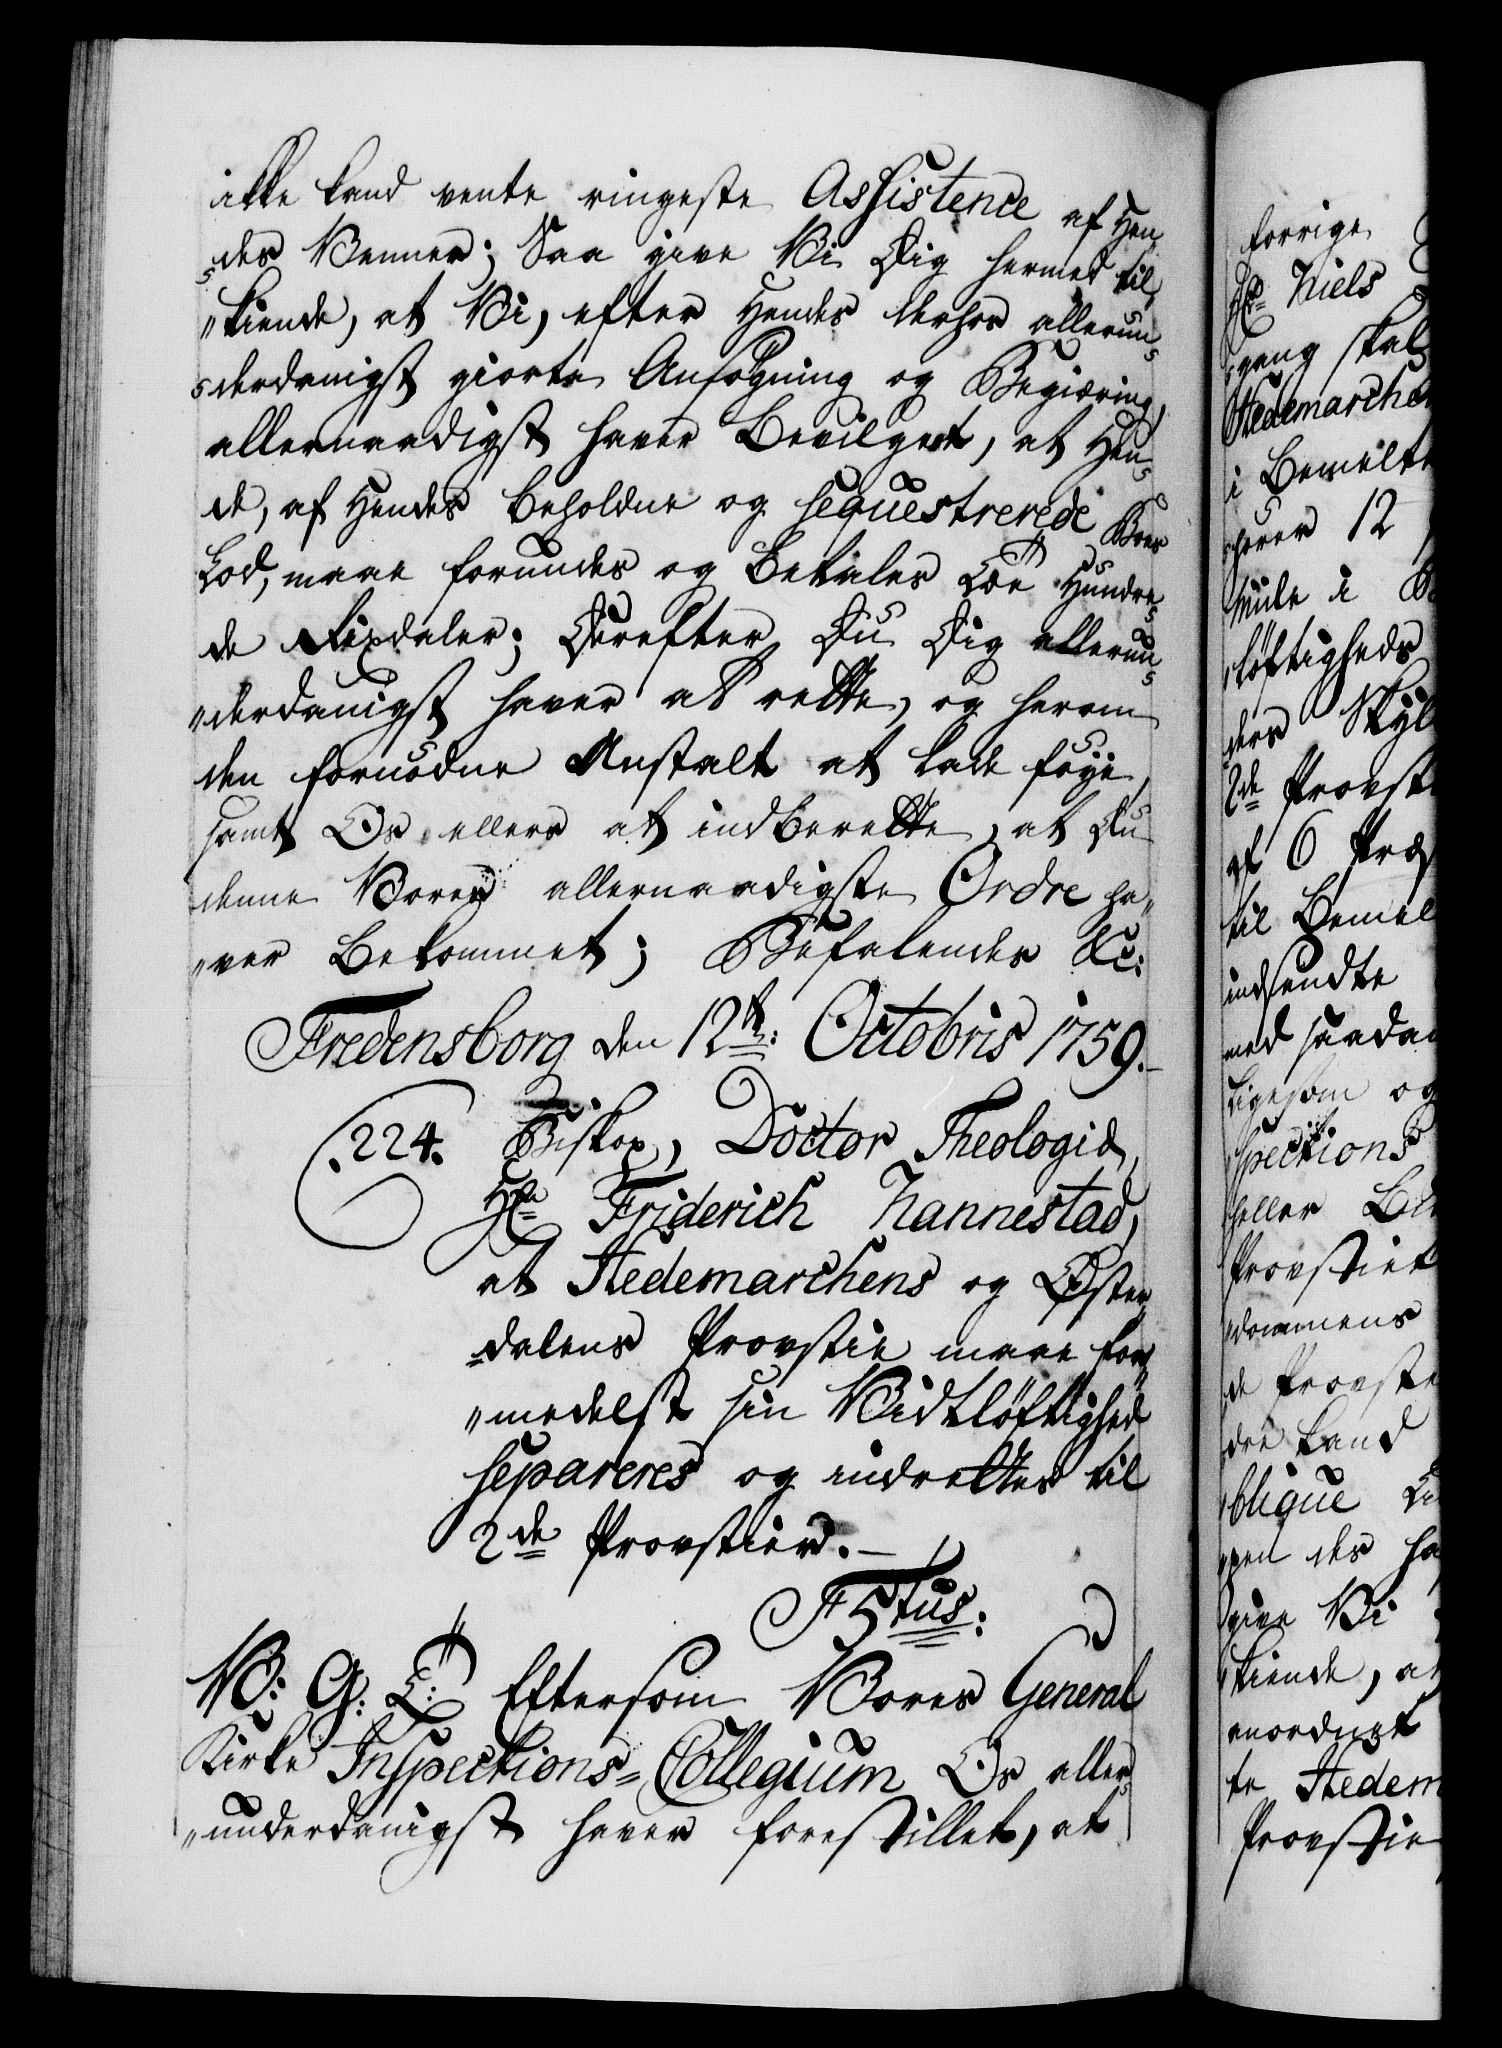 ikke kand vente ringeste Assistence af Hen
des Venner; Saa give Vi Dig hermed til
"kiende, at Vi, efter Hendes derhos allerun
derdanigst giorte Ansøgning og Begiæring,
allernaadigst haver Bevilget, at Hen
de, af Hendes beholdne og sequestrerede Boes
Lod, maae forundes og betales Toe Hundre
de Rixdaler; Derefter Du Dig allerun
"derdanigst haver at rette, og herom
den fornødne Anstalt at lade føye,
samt Os ellers at indberette, at Du
denne Vores allernaadigste Ordre ha"
"ver bekommet; Befalendes &c:
Fredensborg den 12te: Octobris 1759.
224. Biskop, Doctor Theologiæ,
Hr. Friderich Nannestad,
at Hedemarchens og Øster
dalens Provstie maae for"
"medelst sin Vidtløftighed
separeres og indrettes til
2de Provstier.
F 5tus:
V: G: T: Eftersom Vores General
Kirke Inspections-Collegium Os aller
"underdanigst haver forestillet, at
forrige
Hr. Niels
gang skal
Hedemarche
i Bemelte
hører 12
Mile i
løftigheds
ders Skyl
2de Provst
af 6 Præ
til Bemel
indsendte
med saadan
Ligesom og
spections
heller
Provstiet
"dommens
de Provste
dre kand
blique
pen des ha
give Vi
kiende, a
anordnet
te Hedem
Provstie